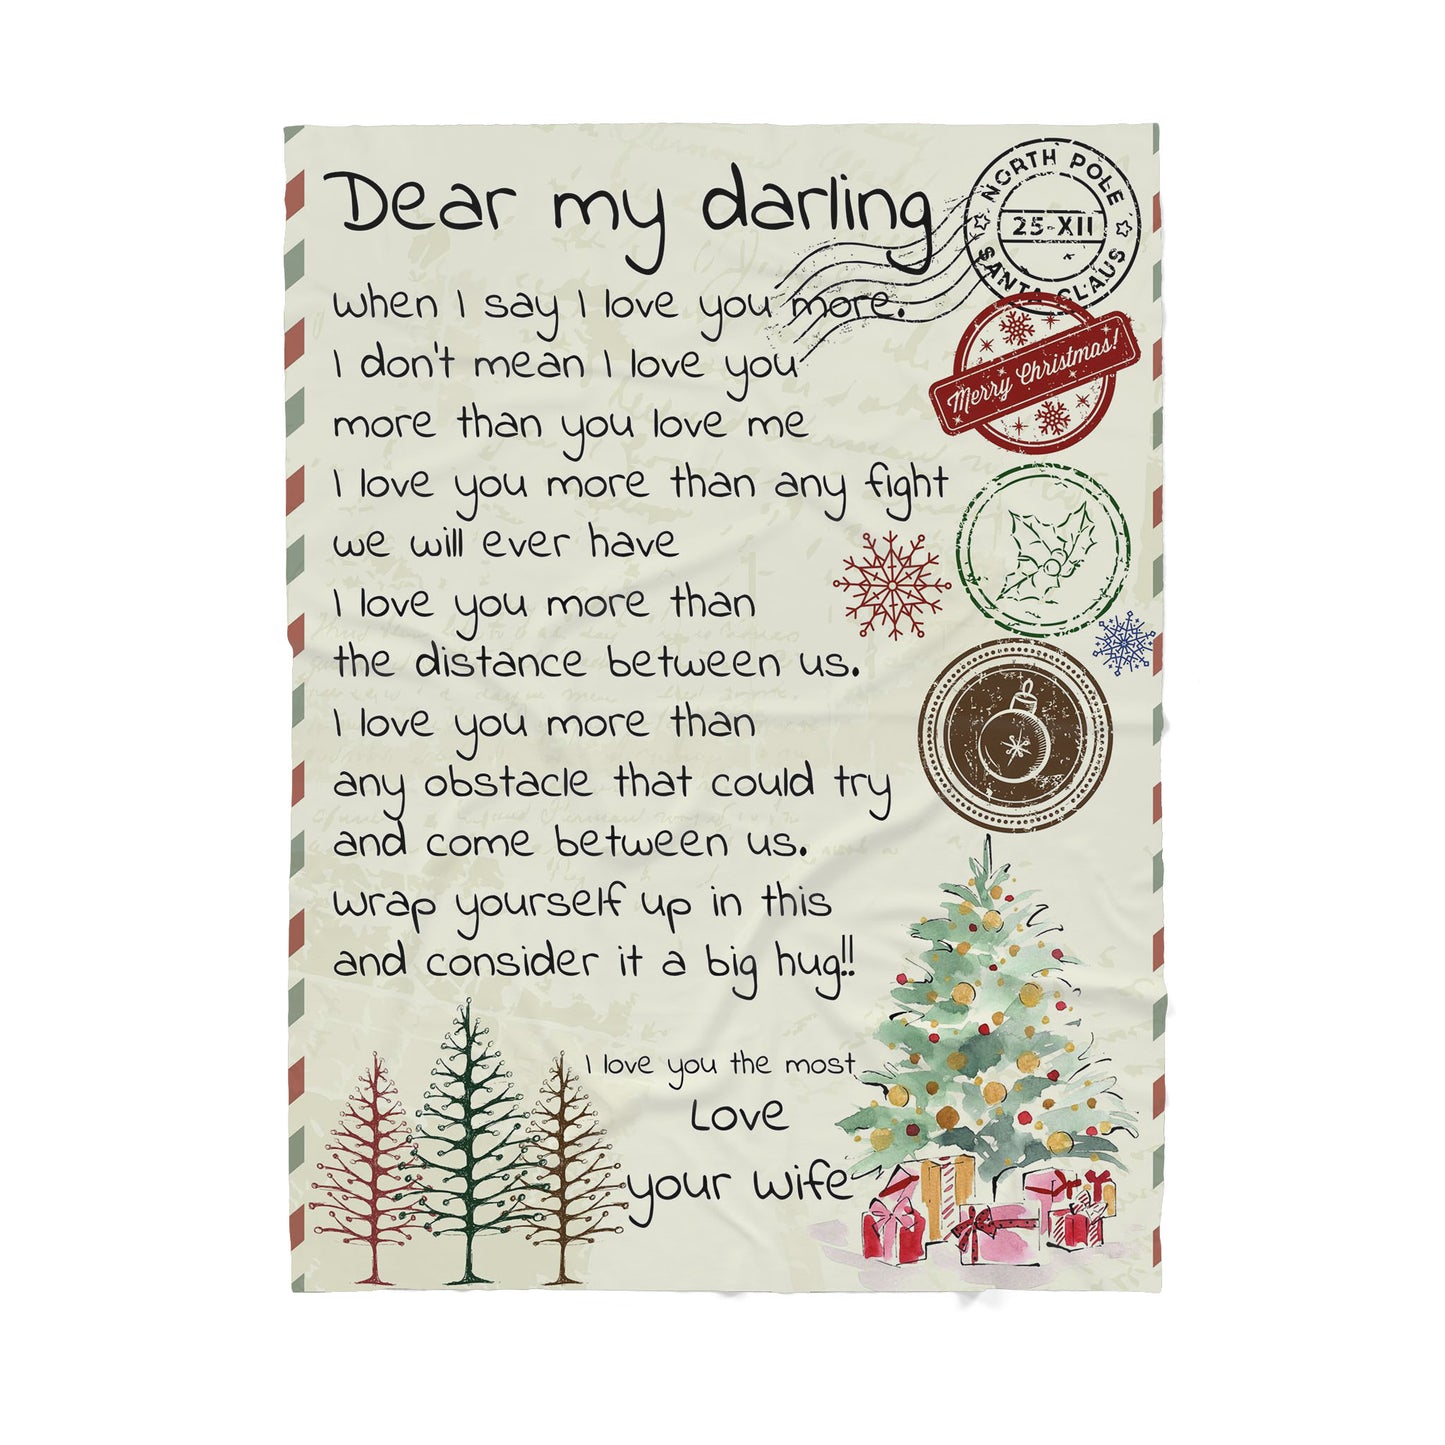 Dear my darling
when I say I love you more.
I don't mean I love you
more than you love me
I love you more than any fight
we will ever have
I love you more than
the distance between us.
I love you more than
any obstacle that could try
and come between us.
wrap yourself up in this
and consider it a big hug!!
I love you the most
Love
your wife
NORTH POLE
25-XII
SANTA CLAUS
Merry Christmas!